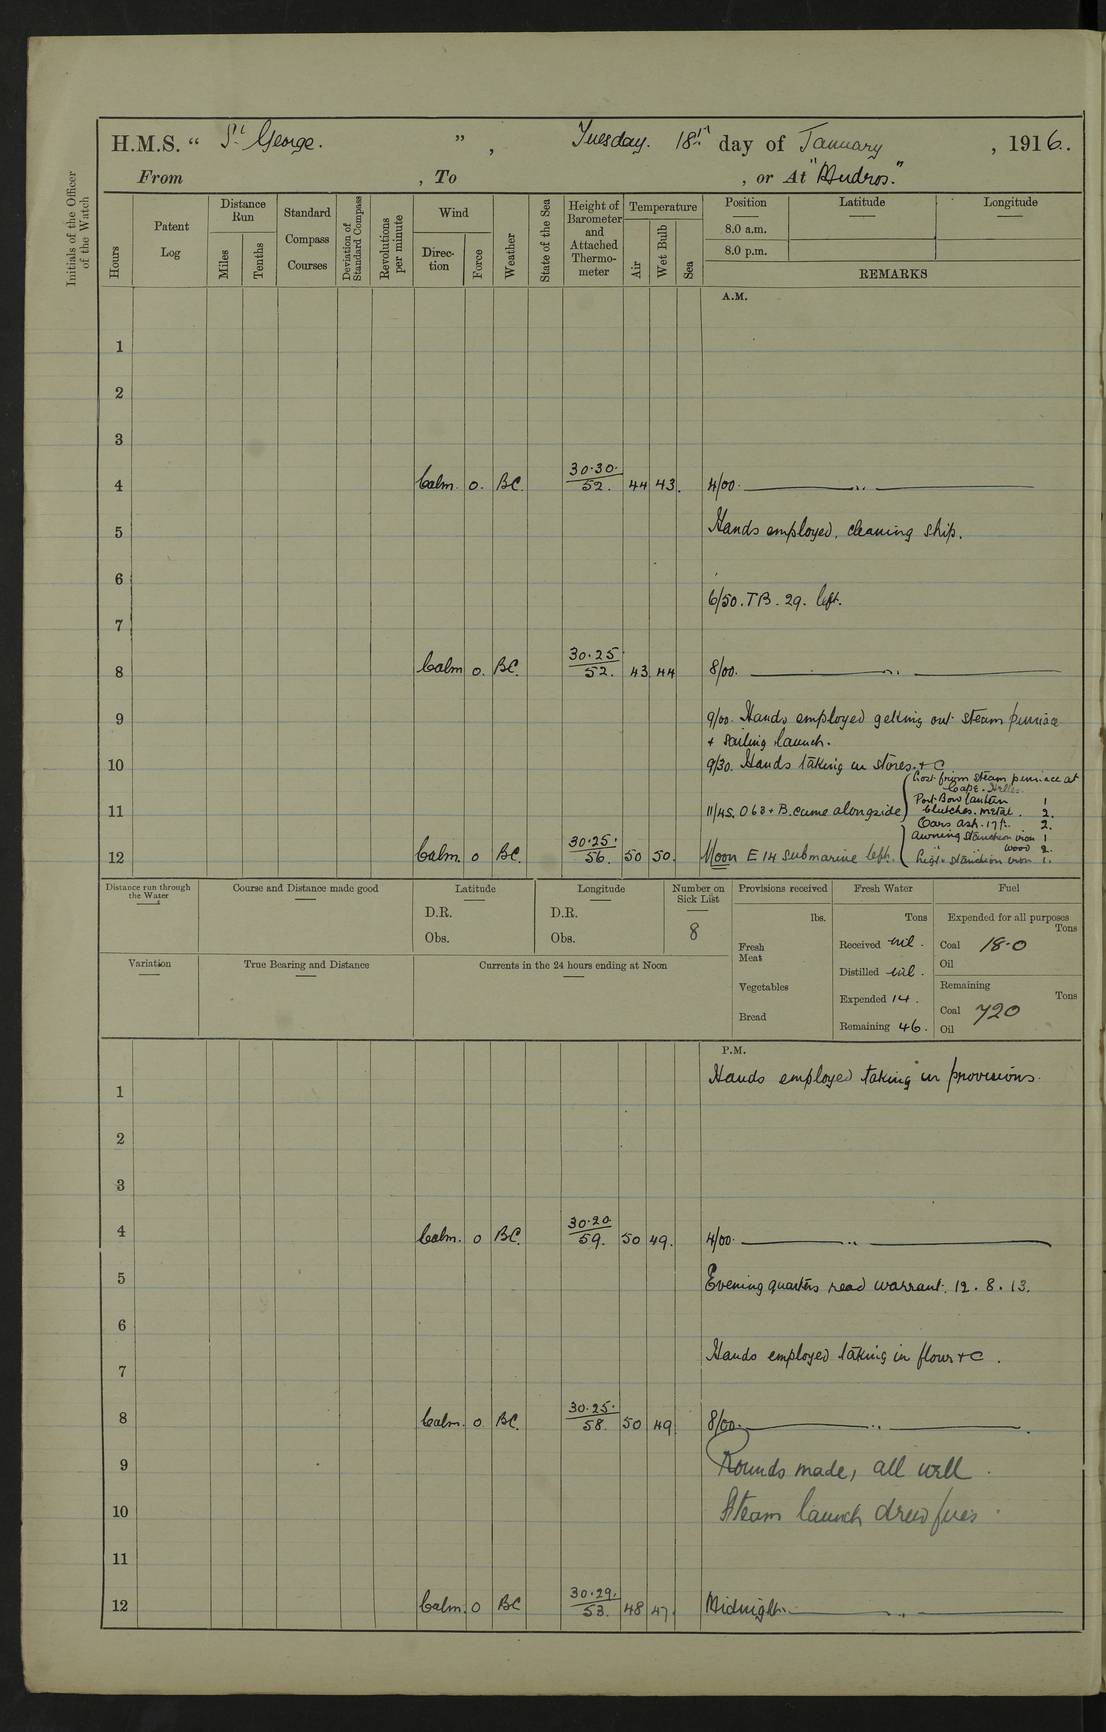 H.M.S. “ St George. ”, Tuesday. 18th day of January, 1916.
From , To , or At "Mudros."
Initials of the Officer of the Watch
Hours
Patent Log
Distance Run
Miles
Tenths
Standard Compass Courses
Deviation of Standard Compass
Revolutions per minute
Wind
Direction
Force
Weather
State of the Sea
Height of Barometer and Attached Thermometer
Temperature
Air
Wet Bulb
Sea
Position
8.0 a.m.
8.0 p.m.
Latitude
Longitude
REMARKS
A.M.
1
2
3
4 Calm. 0. BC. 30.30. 52. 44 43. 4/00. ——— " ———
5 Hands employed, cleaning ship.
6
6/50. TB. 29. left.
7
8 Calm 0. BC. 30.25. 52. 43. 44 8/00. ——— " ———
9 9/00. Hands employed getting out steam pinnace
+ sailing launch.
10 9/30. Hands taking in stores. + C
Lost from steam pinnace at
Cape. Helles.
Port Bow lantern 1
11 11/45. 063 + B. came alongside Clutches. metal. 2.
Oars ash. 17ft. 2.
Awning Stanchion iron 1
" " wood 2.
12 Calm. 0 BC. 30.25. 56. 50 50. Noon E 14 submarine left. Stanchion iron 1.
Distance run through the Water
Course and Distance made good
Latitude
D.R.
Obs.
Longitude
D.R.
Obs.
Number on Sick List
8
Provisions received
lbs.
Fresh Meat
Vegetables
Bread
Fresh Water
Tons
Received nil.
Distilled nil.
Expended 14.
Remaining 46.
Fuel
Expended for all purposes
Tons
Coal 18.0
Oil
Remaining
Tons
Coal 720
Oil
Variation
True Bearing and Distance
Currents in the 24 hours ending at Noon
P.M.
Hands employed taking in provisions.
1
2
3
4 Calm. 0 BC. 30.20. 59. 50 49. 4/00. ——— " ———
5 Evening quarters read warrant. 12. 8. 13.
6
Hands employed taking in flour + C.
7
8 Calm. 0. BC. 30.25. 58. 50 49. 8/00. ——— " ———
9 Rounds made, all well.
10 Steam launch drew fires.
11
12 Calm. 0 BC 30.29. 53. 48 47. Midnight. ——— " ———